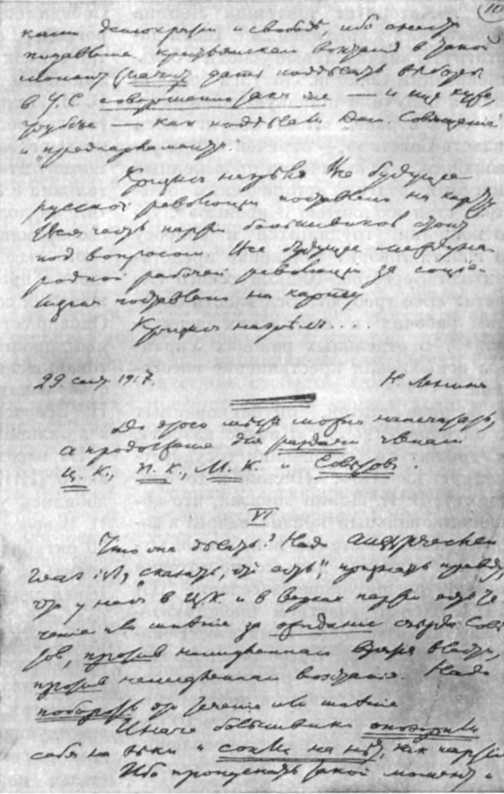 10
демократии и свободе, ибо снести
подавление крестьянского восстания в такой
момент значит дать подделать выборы
в У.С. совершенно так же — и еще хуже,
грубее — как подделали Дем. Совещание
и „предпарламент".
Кризис назрел. Все будущее
русской революции поставлено на карту.
Вся честь партии большевиков стоит
под вопросом. Все будущее междуна-
родной рабочей революции за социа-
лизм поставлено на карту.
Кризис назрел....
29 сент. 1917. Н. Ленин
До этого места можно напечатать,
а продолжение для раздачи членам
Ц. К., П. К., М. К. и Советов.
VI
Что же делать? Надо aussprechen
was ist, „сказать, что есть", признать правду,
что у нас в ЦК и в верхах партии есть те-
чение или мнение за ожидание съезда Сове-
тов, против немедленного взятия власти,
против немедленного восстания. Надо
побороть это течение или мнение.
Иначе большевики опозорили
себя на веки и сошли на нет, как партия.
Ибо пропускать такой момент и